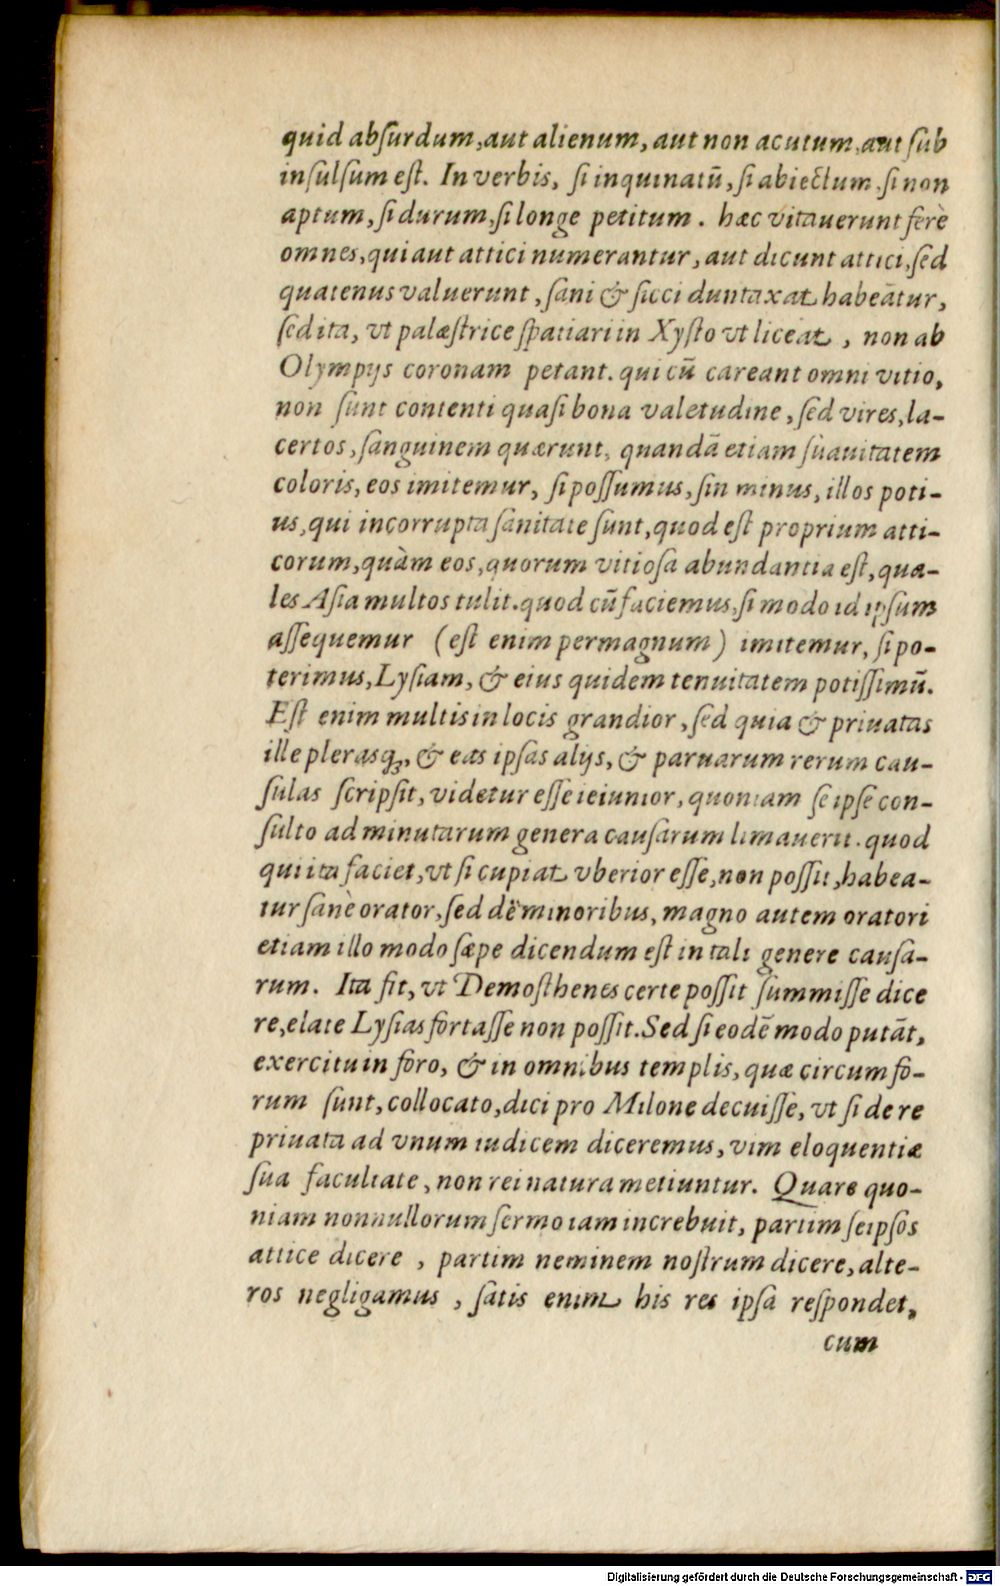 quid abſurdum, aut alienum, aut non acutum, aut ſub
inſulſum eſt. In verbis, ſi inquinatū, ſi abiectum, ſi non
aptum, ſi durum, ſi longe petitum. hæc vitauerunt ferè
omnes, qui aut attici numerantur, aut dicunt attici, ſed
quatenus valuerunt, ſani & ſicci duntaxat habeātur,
ſed ita, vt palæſtrice ſpatiari in Xyſto vt liceat, non ab
Olympijs coronam petant. qui cū careant omni vitio,
non ſunt contenti quaſi bona valetudine, ſed vires, la-
certos, ſanguinem quærunt, quandā etiam ſuauitatem
coloris, eos imitemur, ſi poſſumus, ſin minus, illos poti-
us, qui incorrupta ſanitate ſunt, quod eſt proprium atti-
corum, quàm eos, quorum vitioſa abundantia eſt, qua-
les Aſia multos tulit. quod cū faciemus, ſi modo id ipſum
aſſequemur (eſt enim permagnum) imitemur, ſi po-
terimus, Lyſiam, & eius quidem tenuitatem potiſſimū.
Eſt enim multis in locis grandior, ſed quia & priuatas
ille plerasq́;, & eas ipſas alijs, & paruarum rerum cau-
ſulas ſcripſit, videtur eſſe ieiunior, quoniam ſe ipſe con-
ſulto ad minutarum genera cauſarum limauerit. quod
qui ita faciet, vt ſi cupiat vberior eſſe, non poſſit, habea-
tur ſanè orator, ſed dē minoribus, magno autem oratori
etiam illo modo ſæpe dicendum eſt in tali genere cauſa-
rum. Ita fit, vt Demoſthenes certe poſſit ſummiſſe dice
re, elate Lyſias fortaſſe non poſſit. Sed ſi eodē modo putāt,
exercitu in foro, & in omnibus templis, quæ circum fo-
rum ſunt, collocato, dici pro Milone decuiſſe, vt ſi de re
priuata ad vnum iudicem diceremus, vim eloquentiæ
ſua facultate, non rei natura metiuntur. Quare quo-
niam nonnullorum ſermo iam increbuit, partim ſeipſos
attice dicere, partim neminem noſtrum dicere, alte-
ros negligamus, ſatis enim his res ipſa reſpondet,
cum
Digitalisierung gefördert durch die Deutsche Forschungsgemeinschaft - DFG